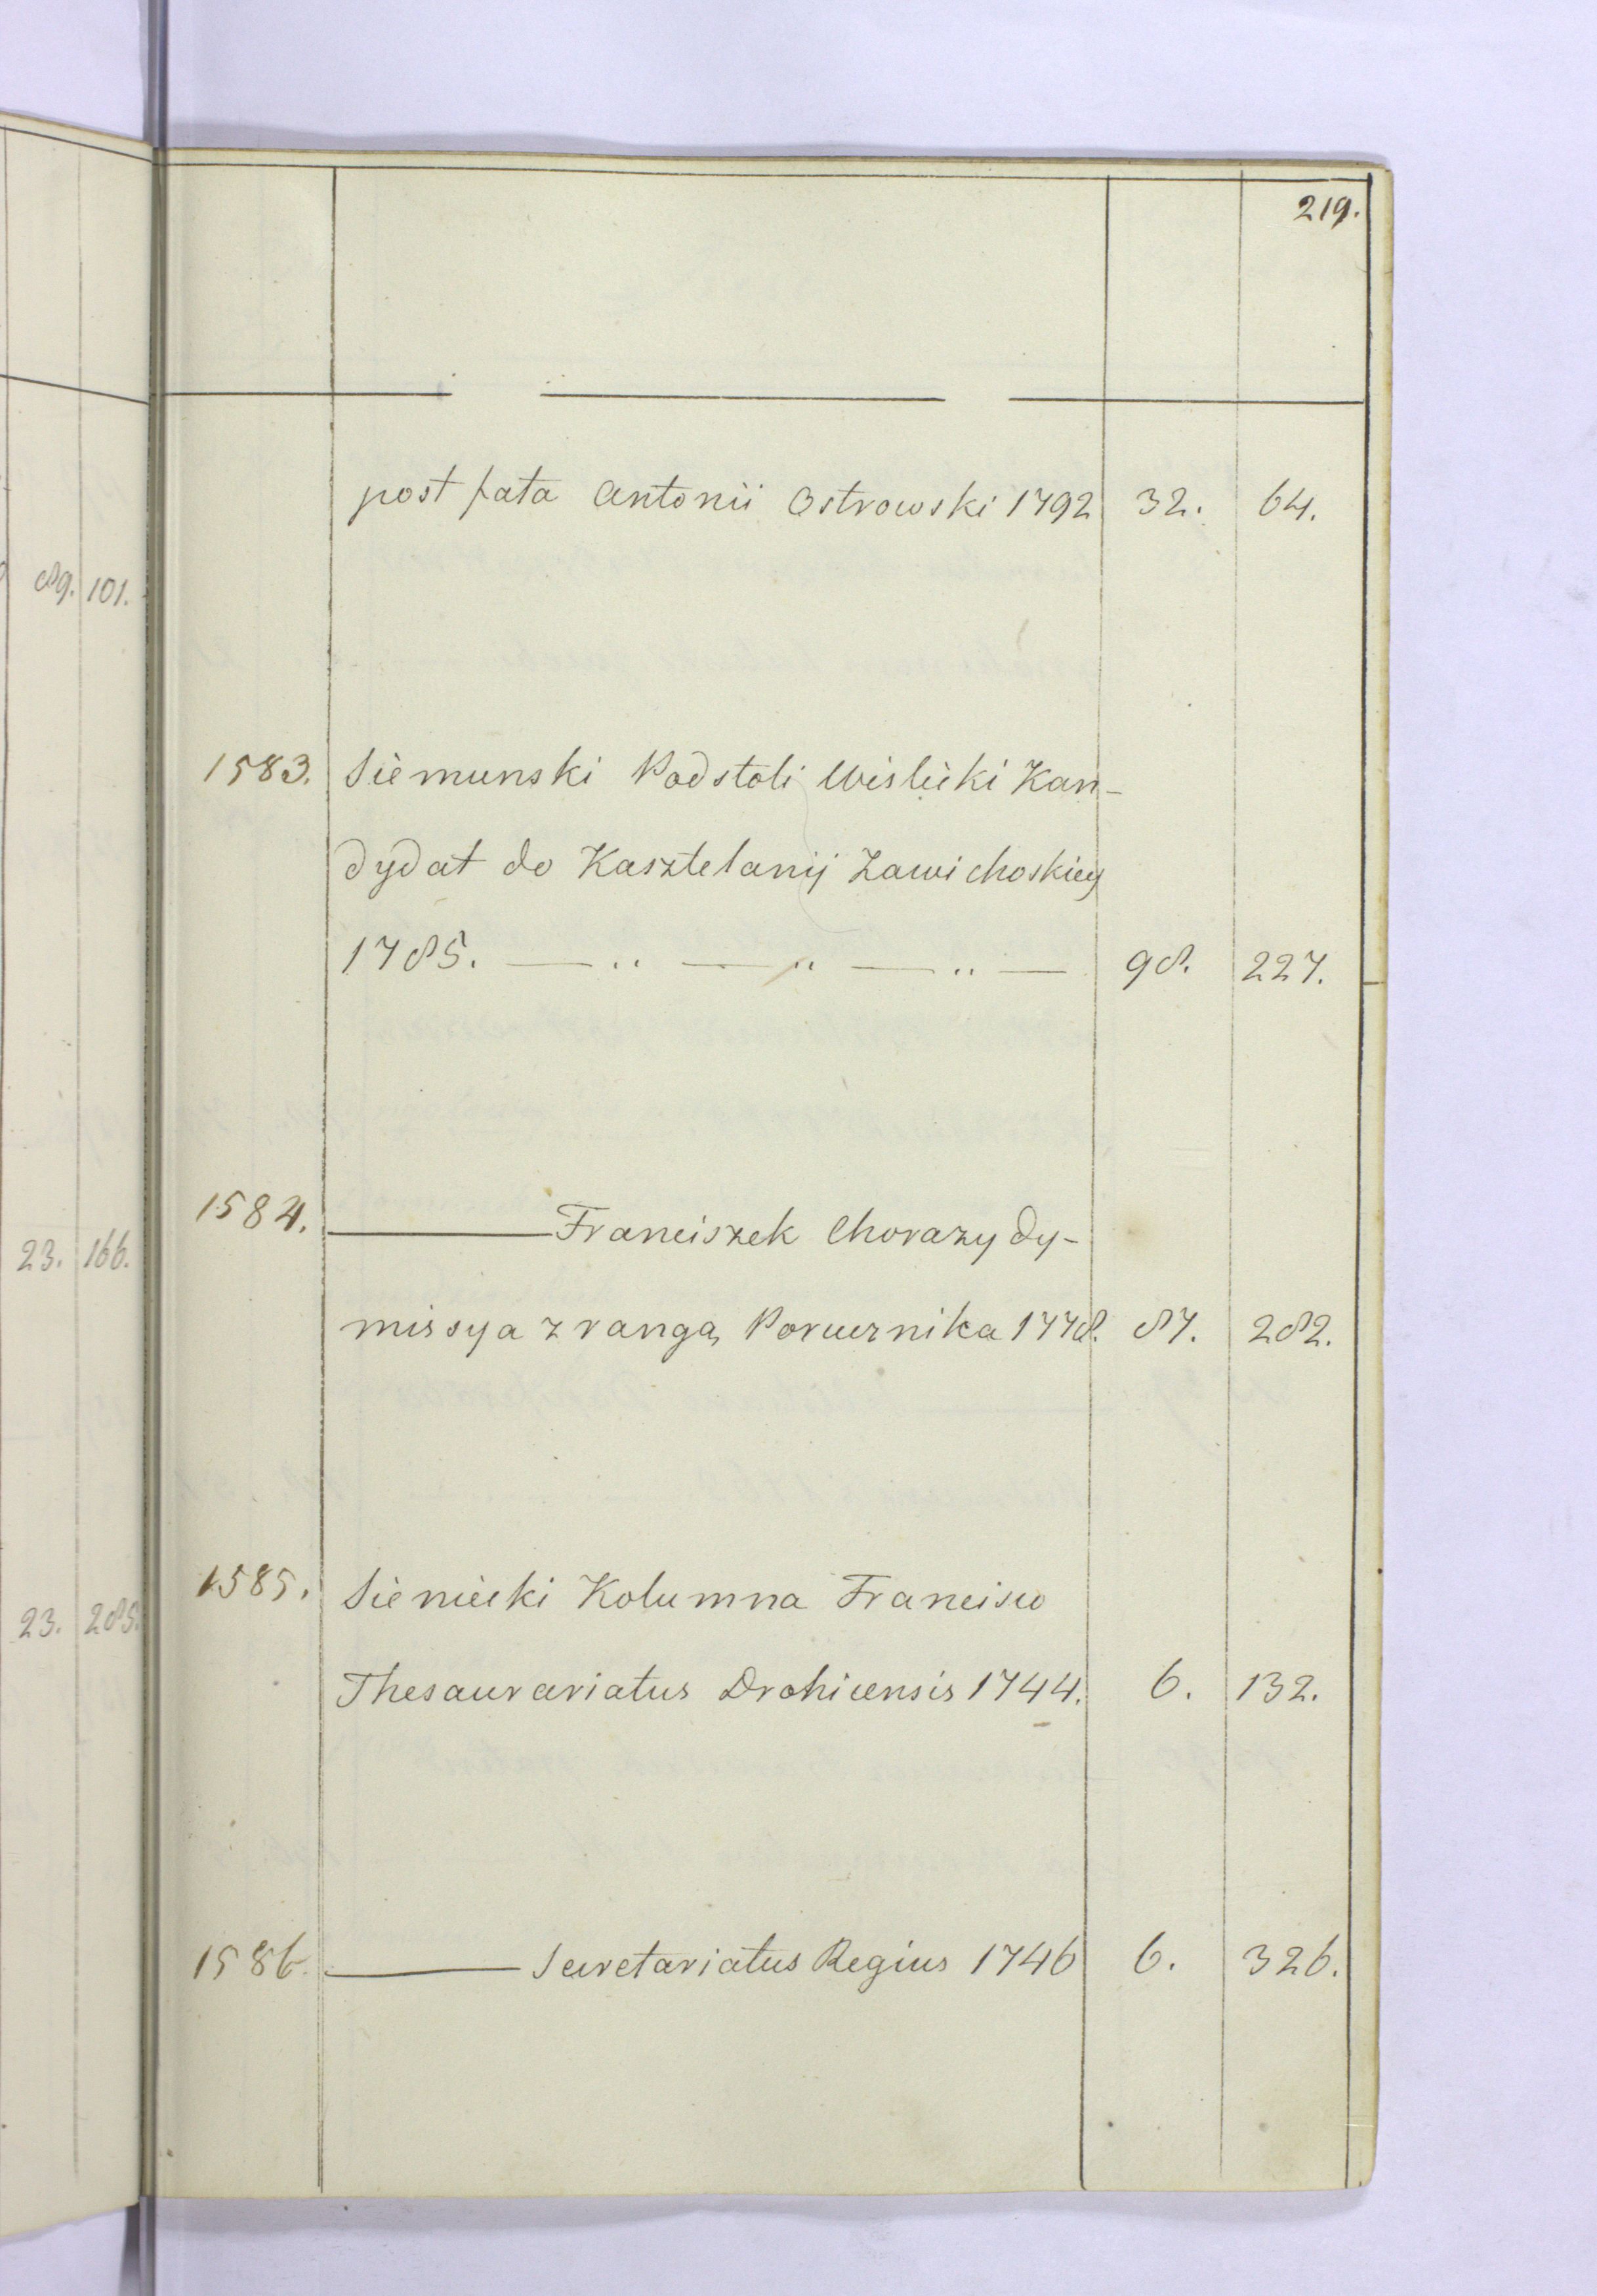 219.
post fata Antonii Ostrowski 1792 32. 64.
89. 101.
1583. Siemunski Podstoli Wislicki Kan-
dydat do Kasztelanij Zawichoskiey
1785. — „ — „ — „ — 98. 227.
1584. ——— Franciszek Chorazy dy-
23. 166.
missya z rangą Porucznika 1778. 87. 282.
1585. Sieniecki Kolumna Francisco
23. 285.
Thesaurariatus Drohicensis 1744. 6. 132.
1586. ——— Secretariatus Regius 1746 6. 326.